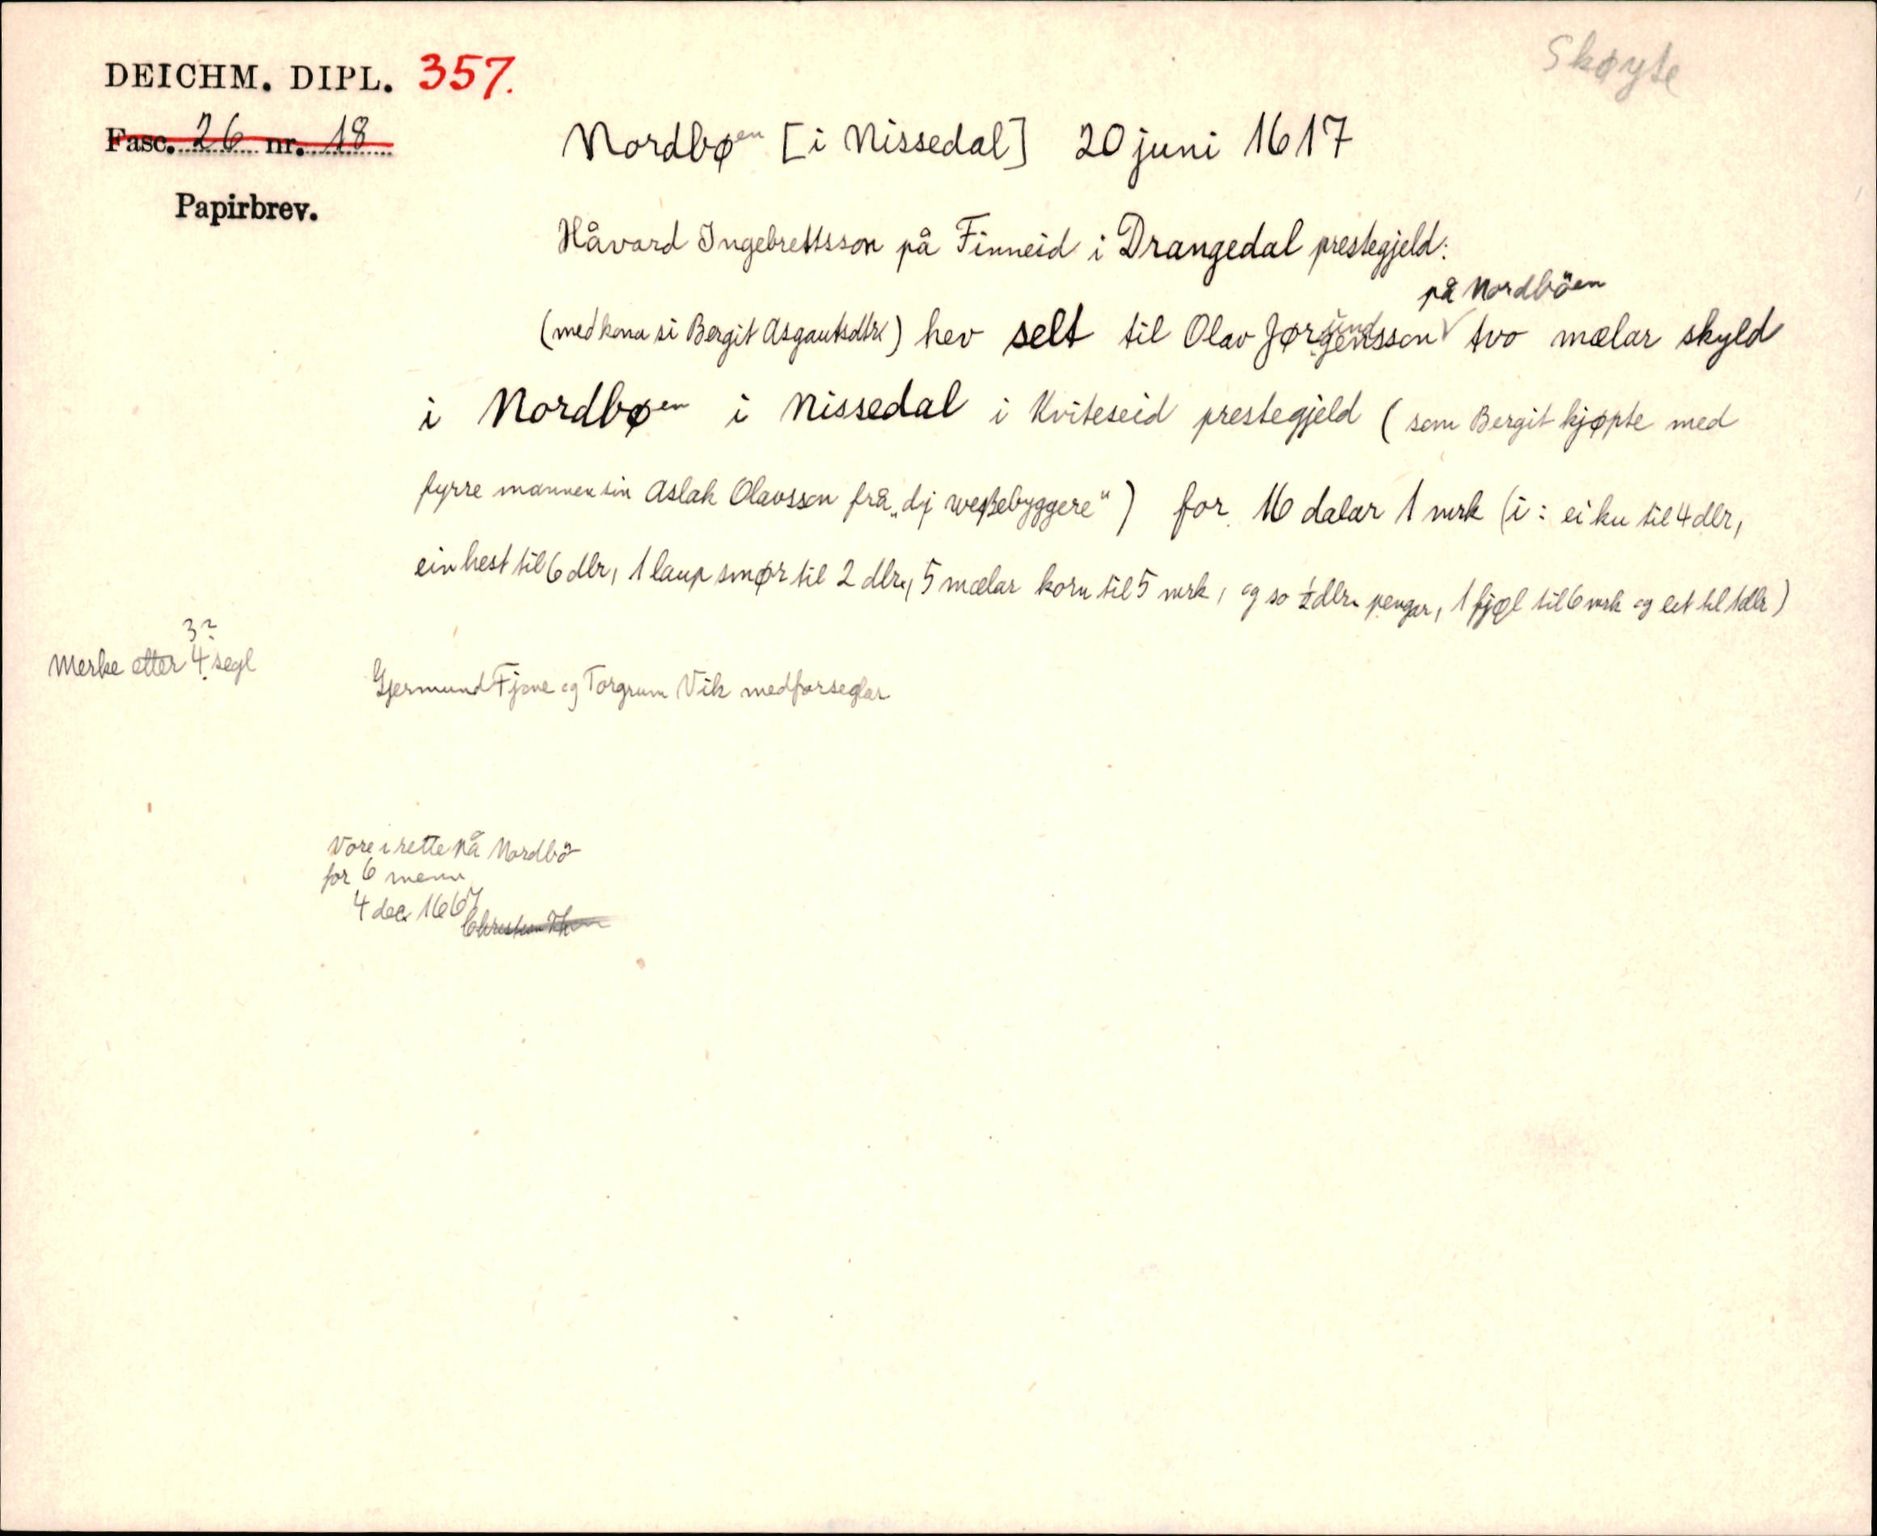 DEICHM. DIPL. 357.
Skøyte
Fasc. 26 nr. 18
Nordbøen [i Nissedal] 20 juni 1617
Papirbrev.
Håvard Ingebrettsson på Finneid i Drangedal prestegjeld:
på Nordbøen
(med kona si Bergit Asgautsdtr) hev selt til Olav Jørgensson tvo mælar skyld
i Nordbøen i Nissedal i Kviteseid prestegjeld (som Bergit kjøpte med
fyrre mannen sin Aslak Olavsson frå „dj westebyggere“) for 16 dalar 1 mrk (i: ei ku til 4 dlr,
ein hest til 6 dlr, 1 laup smør til 2 dlr, 5 mælar korn til 5 mrk, og so ½ dlr pengar, 1 fjøl til 6 mrk og eit til 1 dlr)
3?
Merke etter 4 segl
Gjermund Fjone og Torgrum Vik medforseglar
Vore i rette på Nordbø
for 6 menn
4 dec 1667
Christian